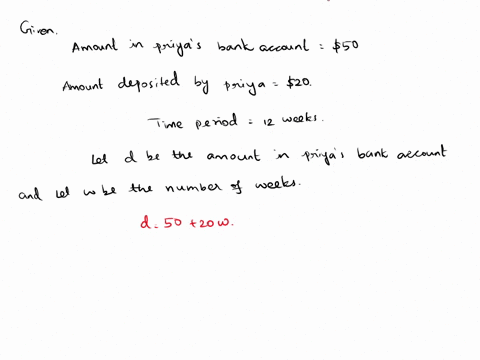 Given.
Amount in priya's bank account = $50
Amount deposited by priya = $20.
Time period = 12 weeks.
Let d be the amount in priya's bank account
and let w be the number of weeks.
d = 50 + 20w.